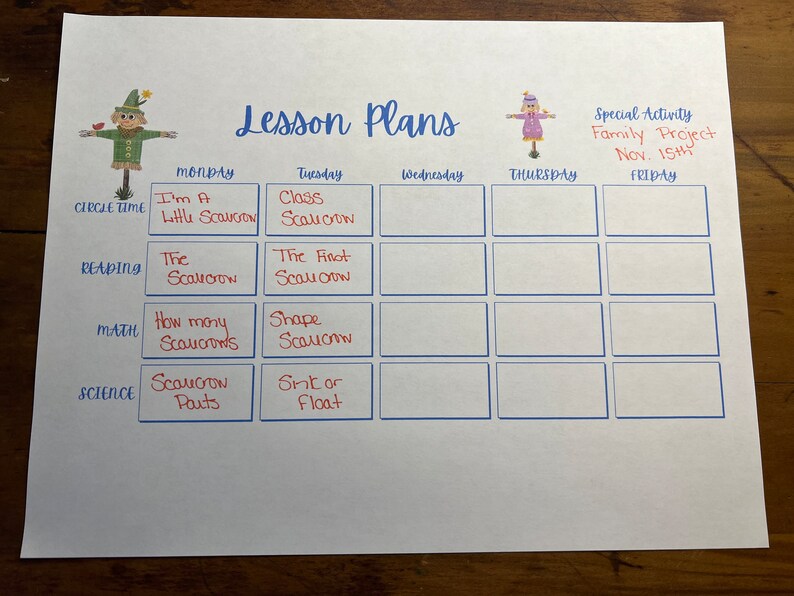 Lesson Plans
Special Activity
Family Project
Nov. 15th
MONDAY Tuesday Wednesday THURSDAY FRIDAY
CIRCLE TIME
I'm A
Little Scarecrow
Class
Scarecrow
READING
The
Scarecrow
The First
Scarecrow
MATH
How many
Scarecrows
Shape
Scarecrow
SCIENCE
Scarecrow
Parts
Sink or
Float